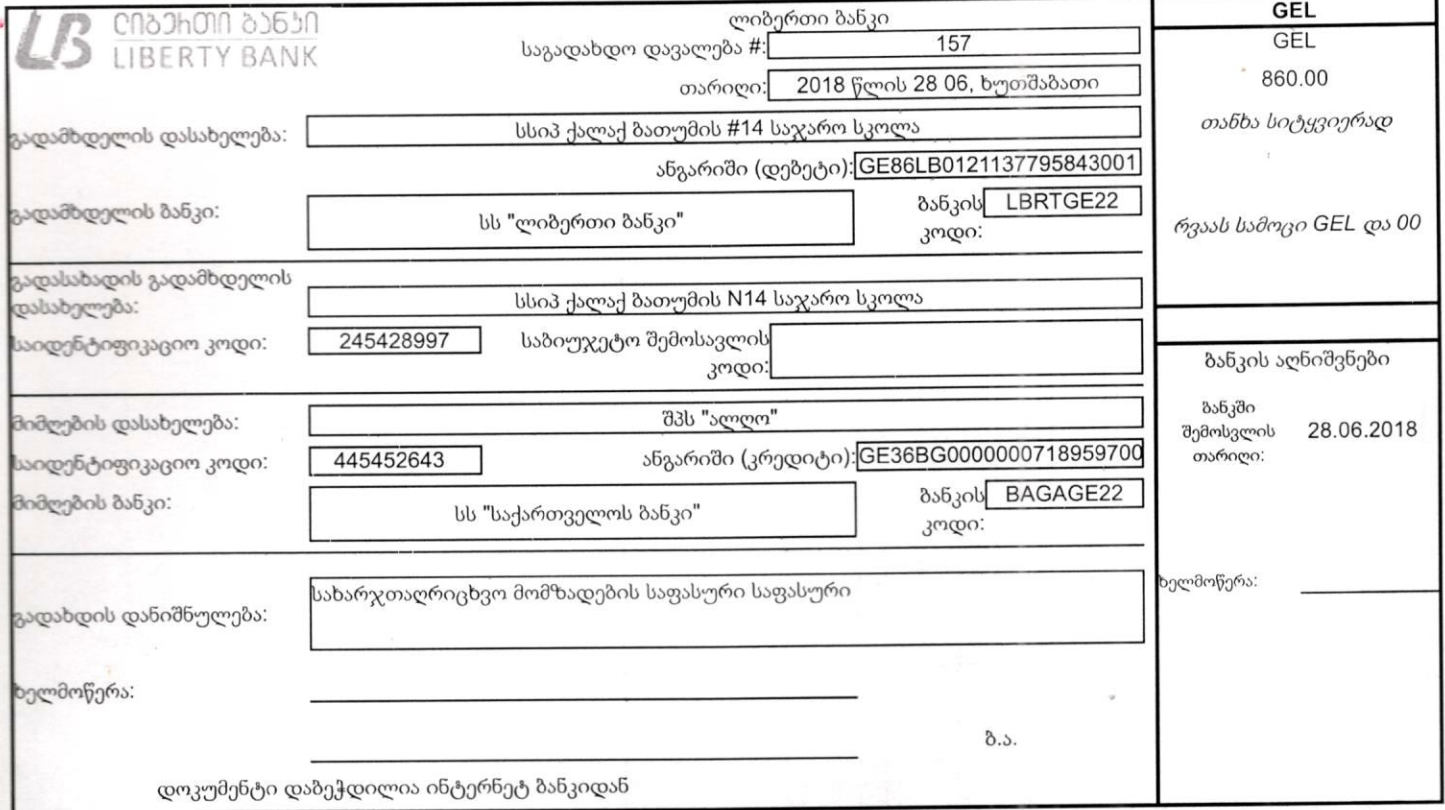 ლიბერთი ბანკი
LIBERTY BANK
ლიბერთი ბანკი
საგადახდო დავალება #: 157
თარიღი: 2018 წლის 28 06, ხუთშაბათი
გადამხდელის დასახელება: სსიპ ქალაქ ბათუმის #14 საჯარო სკოლა
ანგარიში (დებეტი): GE86LB0121137795843001
გადამხდელის ბანკი: სს "ლიბერთი ბანკი" ბანკის კოდი: LBRTGE22
გადასახადის გადამხდელის
დასახელება: სსიპ ქალაქ ბათუმის N14 საჯარო სკოლა
საიდენტიფიკაციო კოდი: 245428997 საბიუჯეტო შემოსავლის
კოდი:
მიმღების დასახელება: შპს "ალღო"
საიდენტიფიკაციო კოდი: 445452643 ანგარიში (კრედიტი): GE36BG0000000718959700
მიმღების ბანკი: სს "საქართველოს ბანკი" ბანკის კოდი: BAGAGE22
გადახდის დანიშნულება: სახარჯთაღრიცხვო მომზადების საფასური საფასური
ხელმოწერა:
ბ.ა.
დოკუმენტი დაბეჭდილია ინტერნეტ ბანკიდან
GEL
GEL
860.00
თანხა სიტყვიერად
რვაას სამოცი GEL და 00
ბანკის აღნიშვნები
ბანკში
შემოსვლის 28.06.2018
თარიღი:
ხელმოწერა: